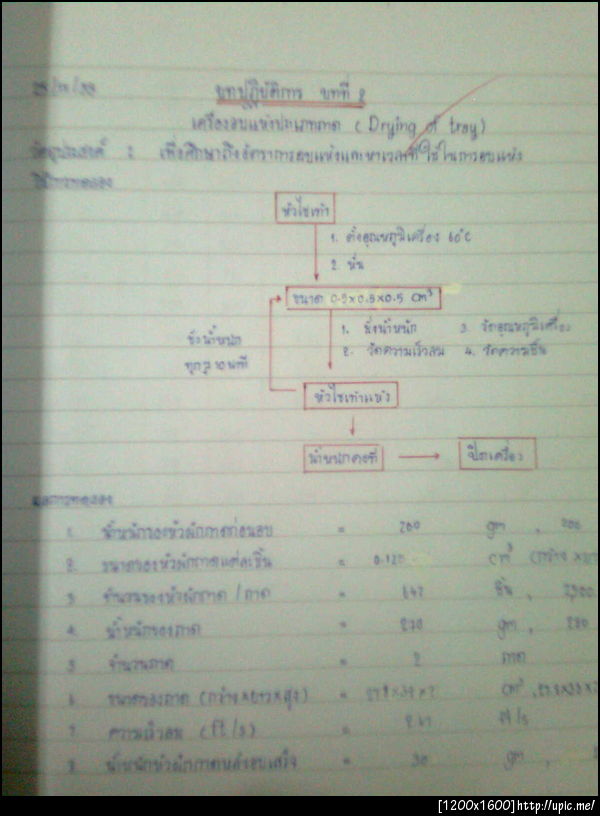 บทปฏิบัติการ บทที่ 2
เครื่องอบแห้งประเภทถาด (Drying of tray)
วัตถุประสงค์ : เพื่อศึกษาถึงอัตราการอบแห้งและหาเวลาที่ใช้ในการอบแห้ง
วิธีการทดลอง
หัวไชเท้า
1. ตั้งอุณหภูมิเครื่อง 60°C
2. หั่น
ขนาด 0.5x0.5x0.5 cm³
1. ชั่งน้ำหนัก 3. วัดอุณหภูมิเครื่อง
2. วัดความเร็วลม 4. วัดความชื้น
ชั่งน้ำหนัก
ทุกๆ 10 นาที
หัวไชเท้าแห้ง
น้ำหนักคงที่
ปิดเครื่อง
ผลการทดลอง
1. น้ำหนักของหัวผักกาดก่อนอบ = 200 gm , 200
2. ขนาดของหัวผักกาดแต่ละชิ้น = 0.125 cm³ (กว้าง
3. จำนวนของหัวผักกาด / ถาด = ชิ้น ,
4. น้ำหนักของถาด = 270 gm , 280
5. จำนวนถาด = 2 ถาด
6. ขนาดของถาด (กว้างxยาวxสูง) = cm³
7. ความเร็วลม (ft/s) = ft/s
8. น้ำหนักหัวผักกาดหลังอบเสร็จ = 30 gm ,
[1200x1600]http://upic.me/